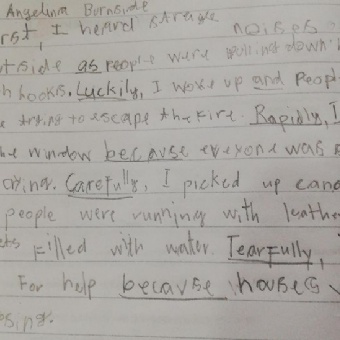 Angelina Burnside
rst, I heard strage noises
tside as people were pulling down h
h hooks. Luckily, I woke up and peopl
e trying to escape the fire. Rapidly, I
he window because everyone was
crying. Carefully, I picked up cand
people were running with leathe
ets filled with water. Tearfully,
For help because houses
osing.